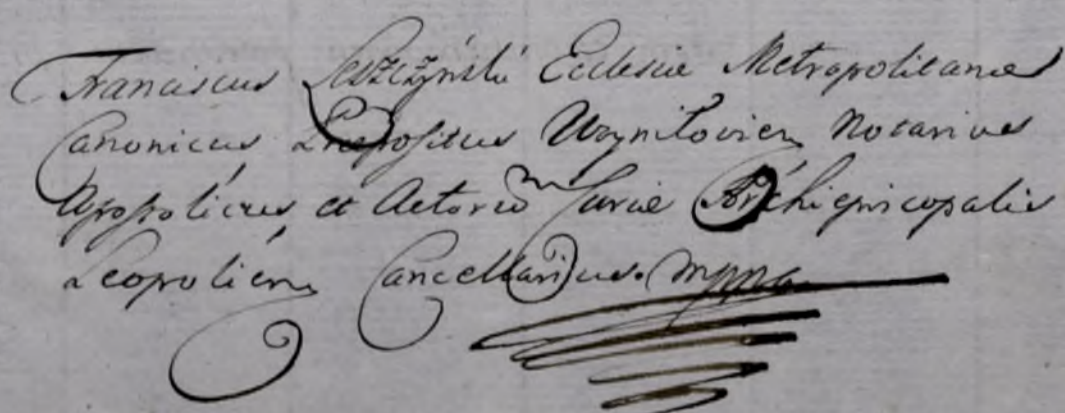 Franciscus Leszczyński Ecclesiæ Metropolitanæ
Canonicus Præpositus Notarius
Apostolicus et Actorū Curiæ Archiepiscopalis
Leopolien Cancellarius mppria